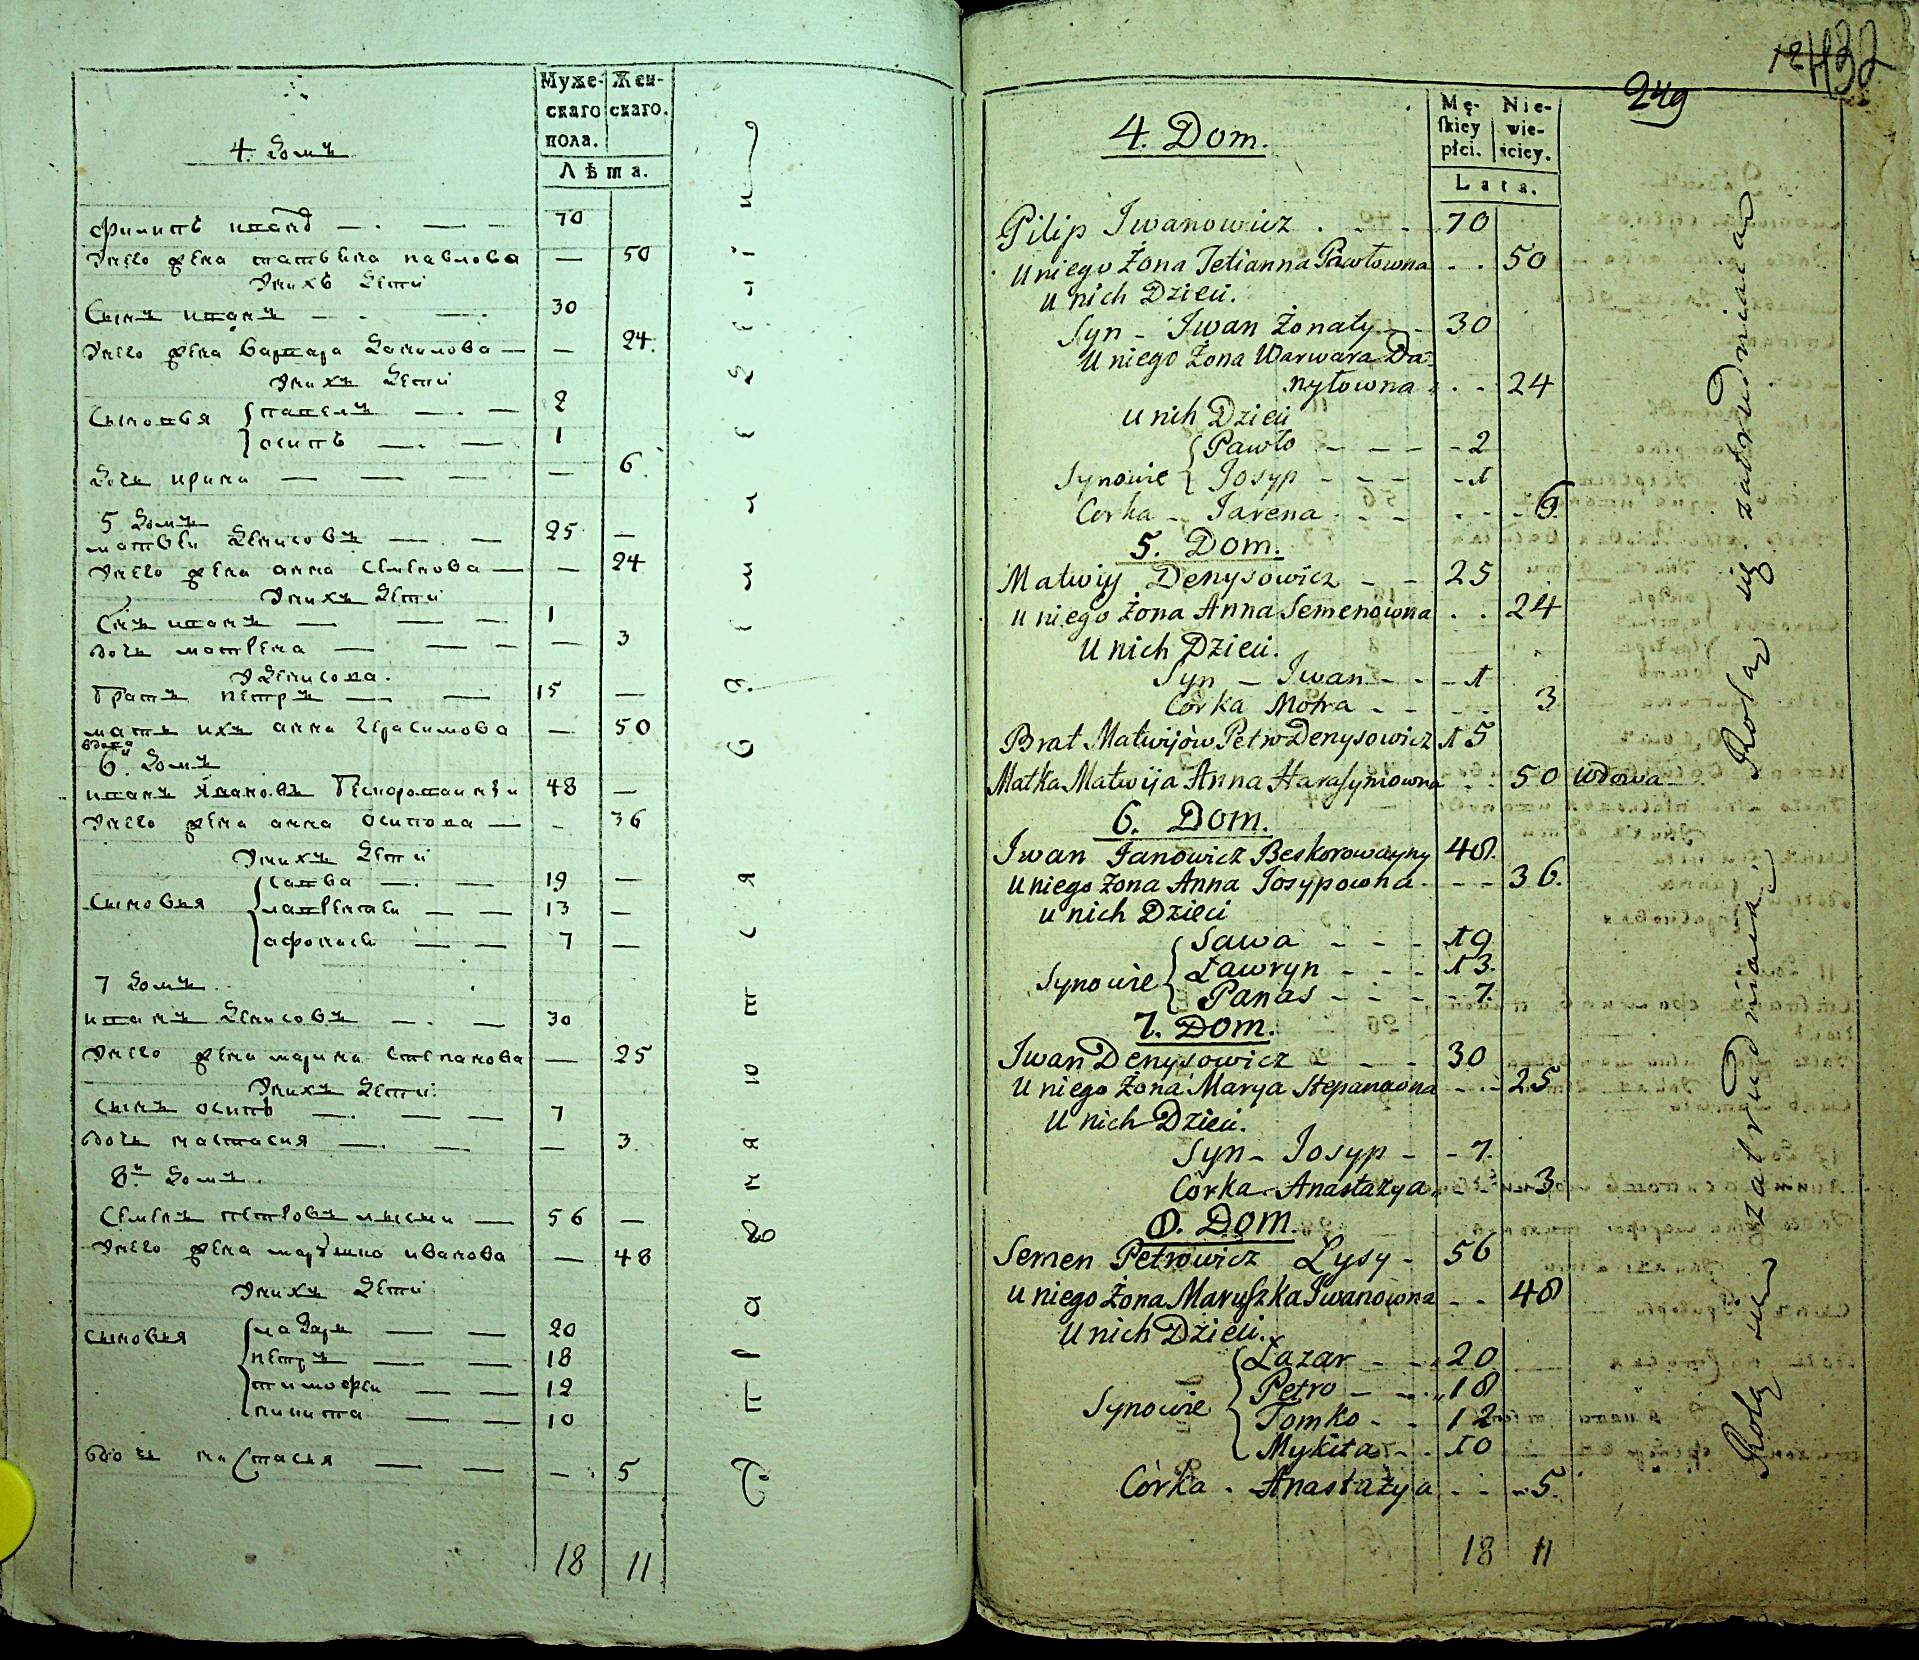 Муже-
скаго
пола.
Жен-
скаго.
Лѣта.
4. домъ
филипъ иванов — . — — 70
Унего жена татьяна павлова — 50
Унихъ дети
Сынъ иванъ — . — . 30
Унего жена варвара данилова — — 24.
Унихъ дети
Сыновья { павелъ — . — 2
осипъ — . — 1
дочь ирина — — — — 6.
5 домъ
матвеи денисовъ — . — 25 —
Унего жена анна семенова — — 24
Унихъ дети
Снъ иванъ — — — 1
дочь матрена — — — — 3
Уденисова.
Братъ петръ — — 15 —
мать ихъ анна герасимова — 50
вдова
6й домъ
иванъ Яковлевъ Бескороваиныи 48 —
Унего жена анна осипова — - 36
Унихъ дети
Сыновья { савва — . — 19 —
лаврентеи — — 13 —
афонасеи — — 7 —
7 домъ
иванъ денисовъ — . — 30
Унего жена марина степанова — 25
Унихъ дети.
Сынъ осипъ — . — — 7
дочь настасия — . — — 3.
8й домъ.
Семенъ петровъ лысыи — 56 —
Унего жена марушка иванова — 48
Унихъ дети
Сыновья { лазарь — — 20
петръ — — 18
тимофеи — — 12
никита — — 10
дочь настасья — — — . 5
18 11
432
249
Mę-
skiey
płci.
Nie-
wie-
ściey.
Lata.
4. Dom.
Pilip Iwanowicz . - - 70
U niego Żona Tetianna Pawłowna . . 50
U nich Dzieci.
Syn - Iwan Żonaty - - 30
U niego Żona Warwara Da-
nyłowna . . 24
U nich Dzieci
Synowie { Pawło - - - - 2
Josyp - - - - 1
Corka - Jarena . - - . - - 6.
5. Dom.
Matwiy Denysowicz - - 25
U niego Żona Anna Semenowna . . 24
U nich Dzieci.
Syn - Iwan - - - 1
Córka Motra - - - - 3
Brat Matwijów Petro Denysowicz 15
Matka Matwija Anna Harasymowna . . 50 wdowa
6. Dom.
Iwan Janowicz Beskorowayny 48.
U niego Żona Anna Josypowna - - - 36.
U nich Dzieci
Synowie { Sawa - - - 19
Ławryn - - - 13.
Panas - - - - 7.
7. Dom.
Iwan Denysowicz - - - 30
U niego Żona Marya Stepanowna - - - 25
U nich Dzieci.
Syn - Josyp - - 7.
Córka - Anastazya - - 3
8. Dom.
Semen Petrowicz Łysy - 56
U niego Żona Maryszka Iwanowna - - 48
U nich Dzieci.
Synowie { Łazar - - 20
Petro - - 18
Tomko - - 12
Mykita - - 10
Córka . Anastazya - - - 5.
18 11
Rolą się zatrudniaią
Rolą się zatrudniaią